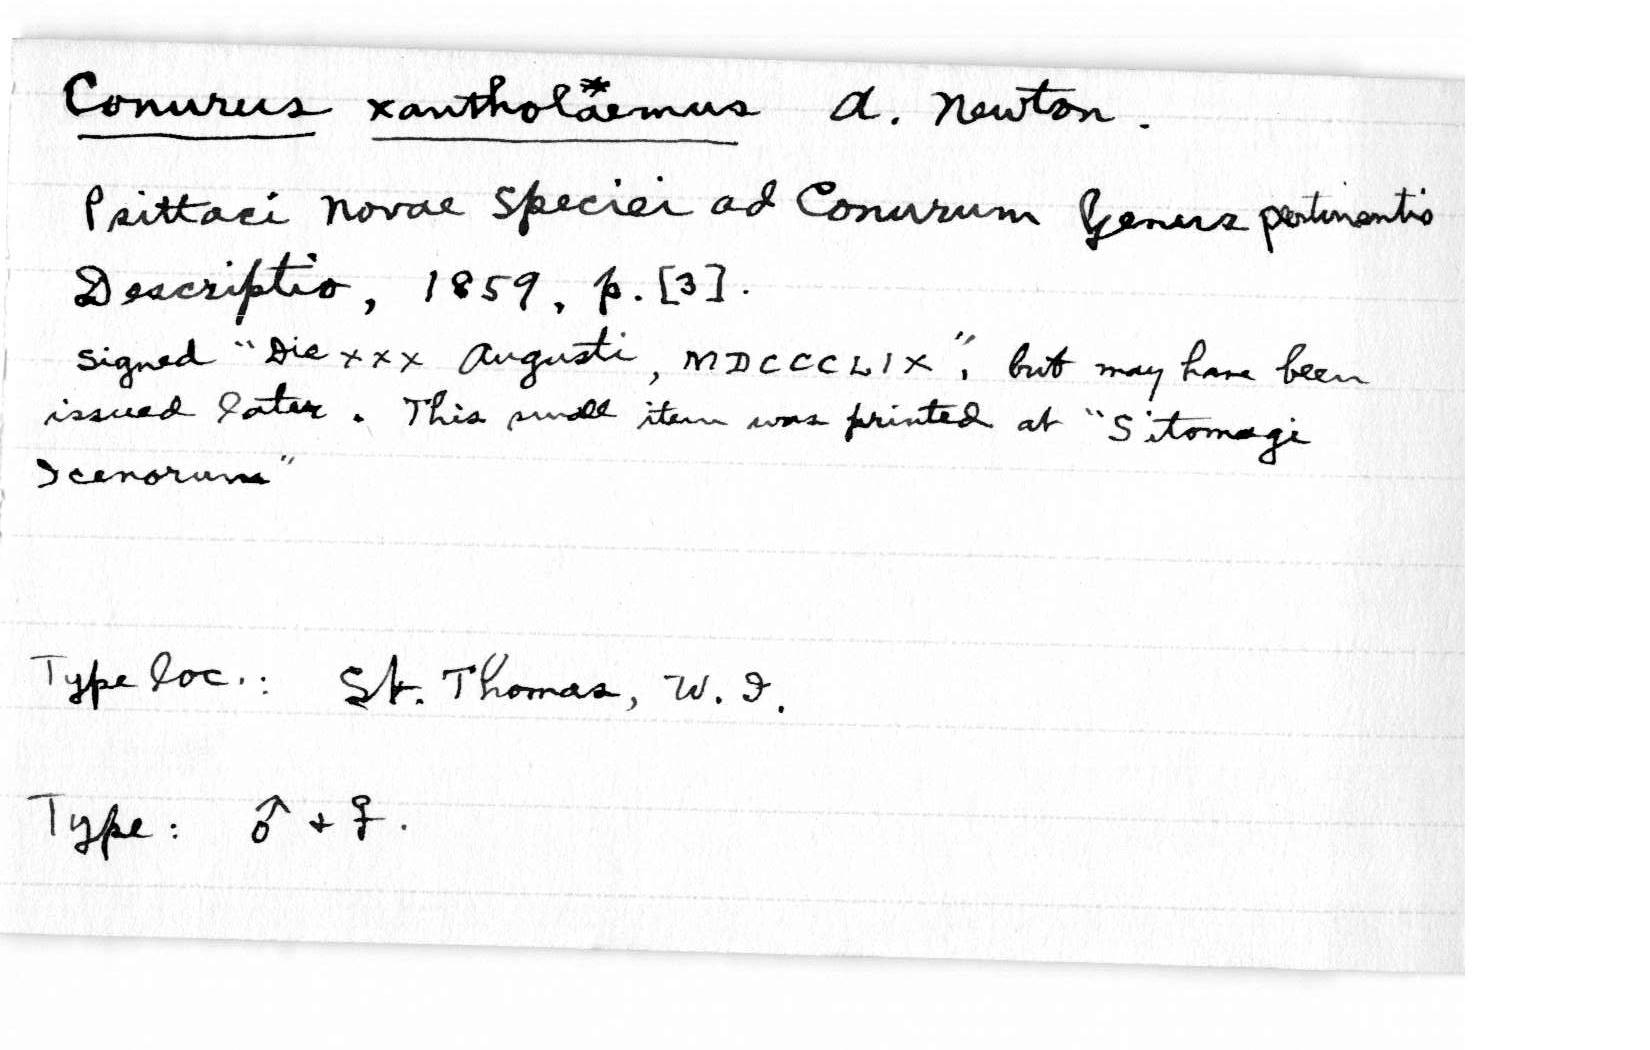 Conurus xantholæmus* A. Newton.
Psittaci Novae Speciei ad Conurum Genus pertinentis
Descriptio, 1859, p. [3].
signed "Die xxx Augusti, MDCCCLIX", but may have been
issued later. This small item was printed at "Sitomagi
Icenorum"
Type loc.: St. Thomas, W. I.
Type: ♂ + ♀.